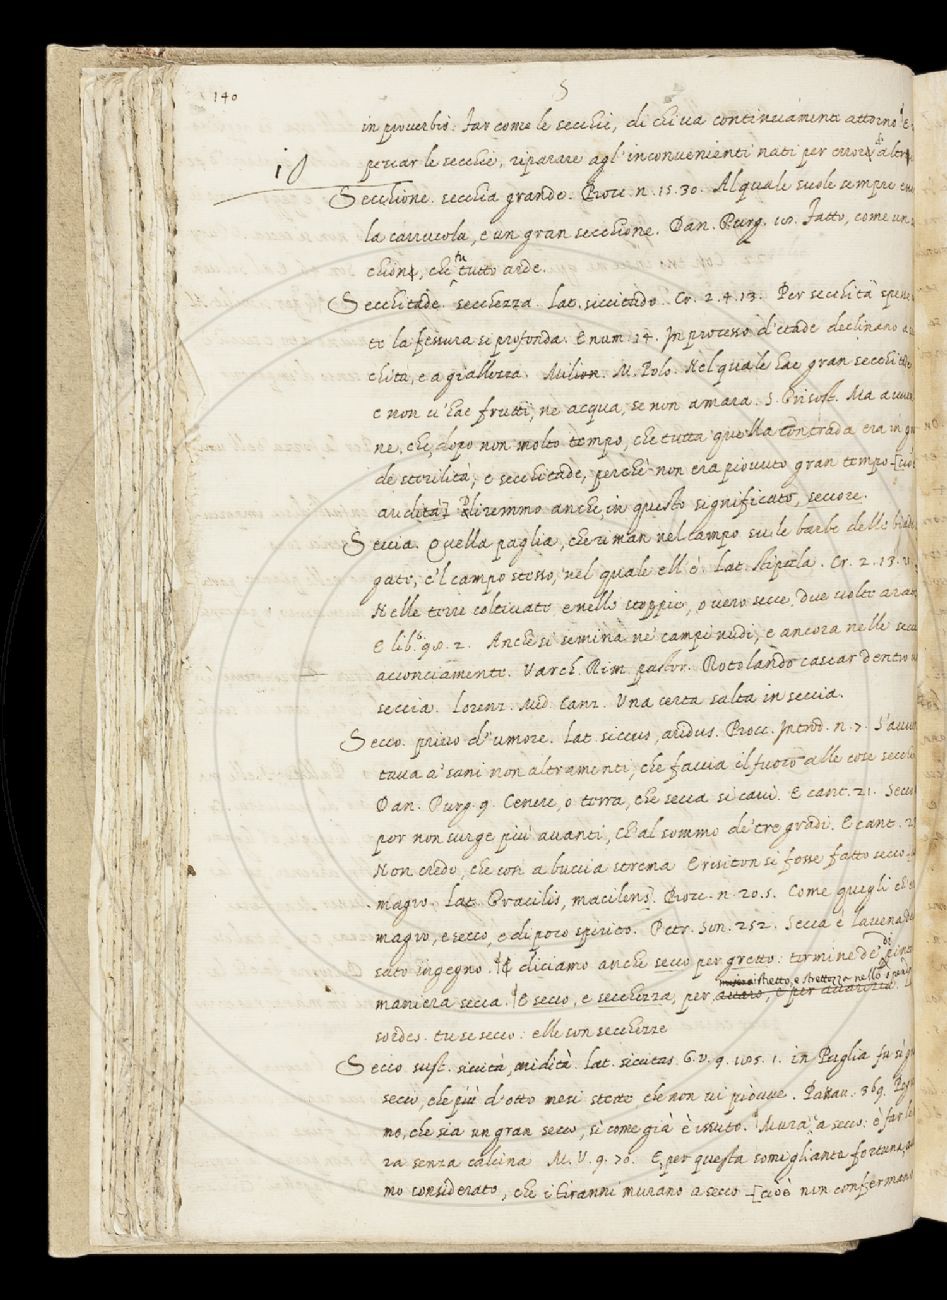 140
S
in prouerbio: Far come le secchie, di chi ua continuamente attorno. E
pescar le secchie, riparare agl'inconuenienti nati per errore d'altri
Secchione. secchia grande. Bocc. n. 15. 30. Al quale suole sempre
la carrucola, e un gran secchione. Dan. Purg. 18. Fatto, come un
chion, che tutto arde.
Secchitade secchezza. Lat. siccitado. Cr. 2. 4. 13. Per secchità
te la fessura si profonda. E num. 14. In processo d'etade declinano a
chità, e a giallezza. Milion. M. Polo. Nel quale hae gran secchitade
e non u'hae frutti, ne acqua, se non amara. S. Grisost. Ma auuen
ne, che, dopo non molto tempo, che tutta quella contrada era in
de sterilità, e secchitade, perchè non era piouuto gran tempo [cioè
aridità] Diremmo anche, in questo significato, seccore.
Seccia. Quella paglia, che riman nel campo su le barbe delle biade
gate, e'l campo stesso, nel quale ell'è. Lat. stipula. Cr. 2. 13.
Nelle terre coltiuate e nelle stoppie, o uero secce, due uolte
E lib. 98. 2. Anche si semina ne' campi nudi, e ancora nelle
acconciamente. Varch. Rim. pastor. Rotolando cascar dentro
seccia. Lorenz. Med. Canz. Una certa salta in seccia.
Secco. priuo d'umore. Lat. siccus, aridus. Bocc. Introd. n. 7. S'auuen
taua a' sani non altramenti, che faccia il fuoco alle cose secche
Dan. Purg. 9. Cenere, o terra, che secca si caui. E cant. 21. Secco
por non surge piu auanti, ch'al sommo de' tre gradi. E cant. 23
Non credo, che con a buccia strema Erisiton si fosse fatto secco
magro. Lat. Gracilis, macilens] Bocc. n. 20. 5. Come quegli
magro, e secco, e di poco spirito. Petr. Son. 252. Secca è la uena
sato ingegno. E diciamo anche secco per gretto: termine de' di
maniera secca. E secco, e secchezza, per misero stretto, e strettezza nello auaro, e per auarizia
sordes. tu se secco: elle son secchezze
Secco sust. siccità, aridità. Lat. siccitas. G. V. 9. 185. 1. in Puglia fu sì
secco, che più d'otto mesi stette che non ui piouue.
mo, che sia un gran secco, si come già è issuto. Mura a secco: è far
ra senza calcina M. V. 9. 70. E per questa somigliante fortuna,
mo considerato, che i Tiranni murano a secco [cioè non confermano